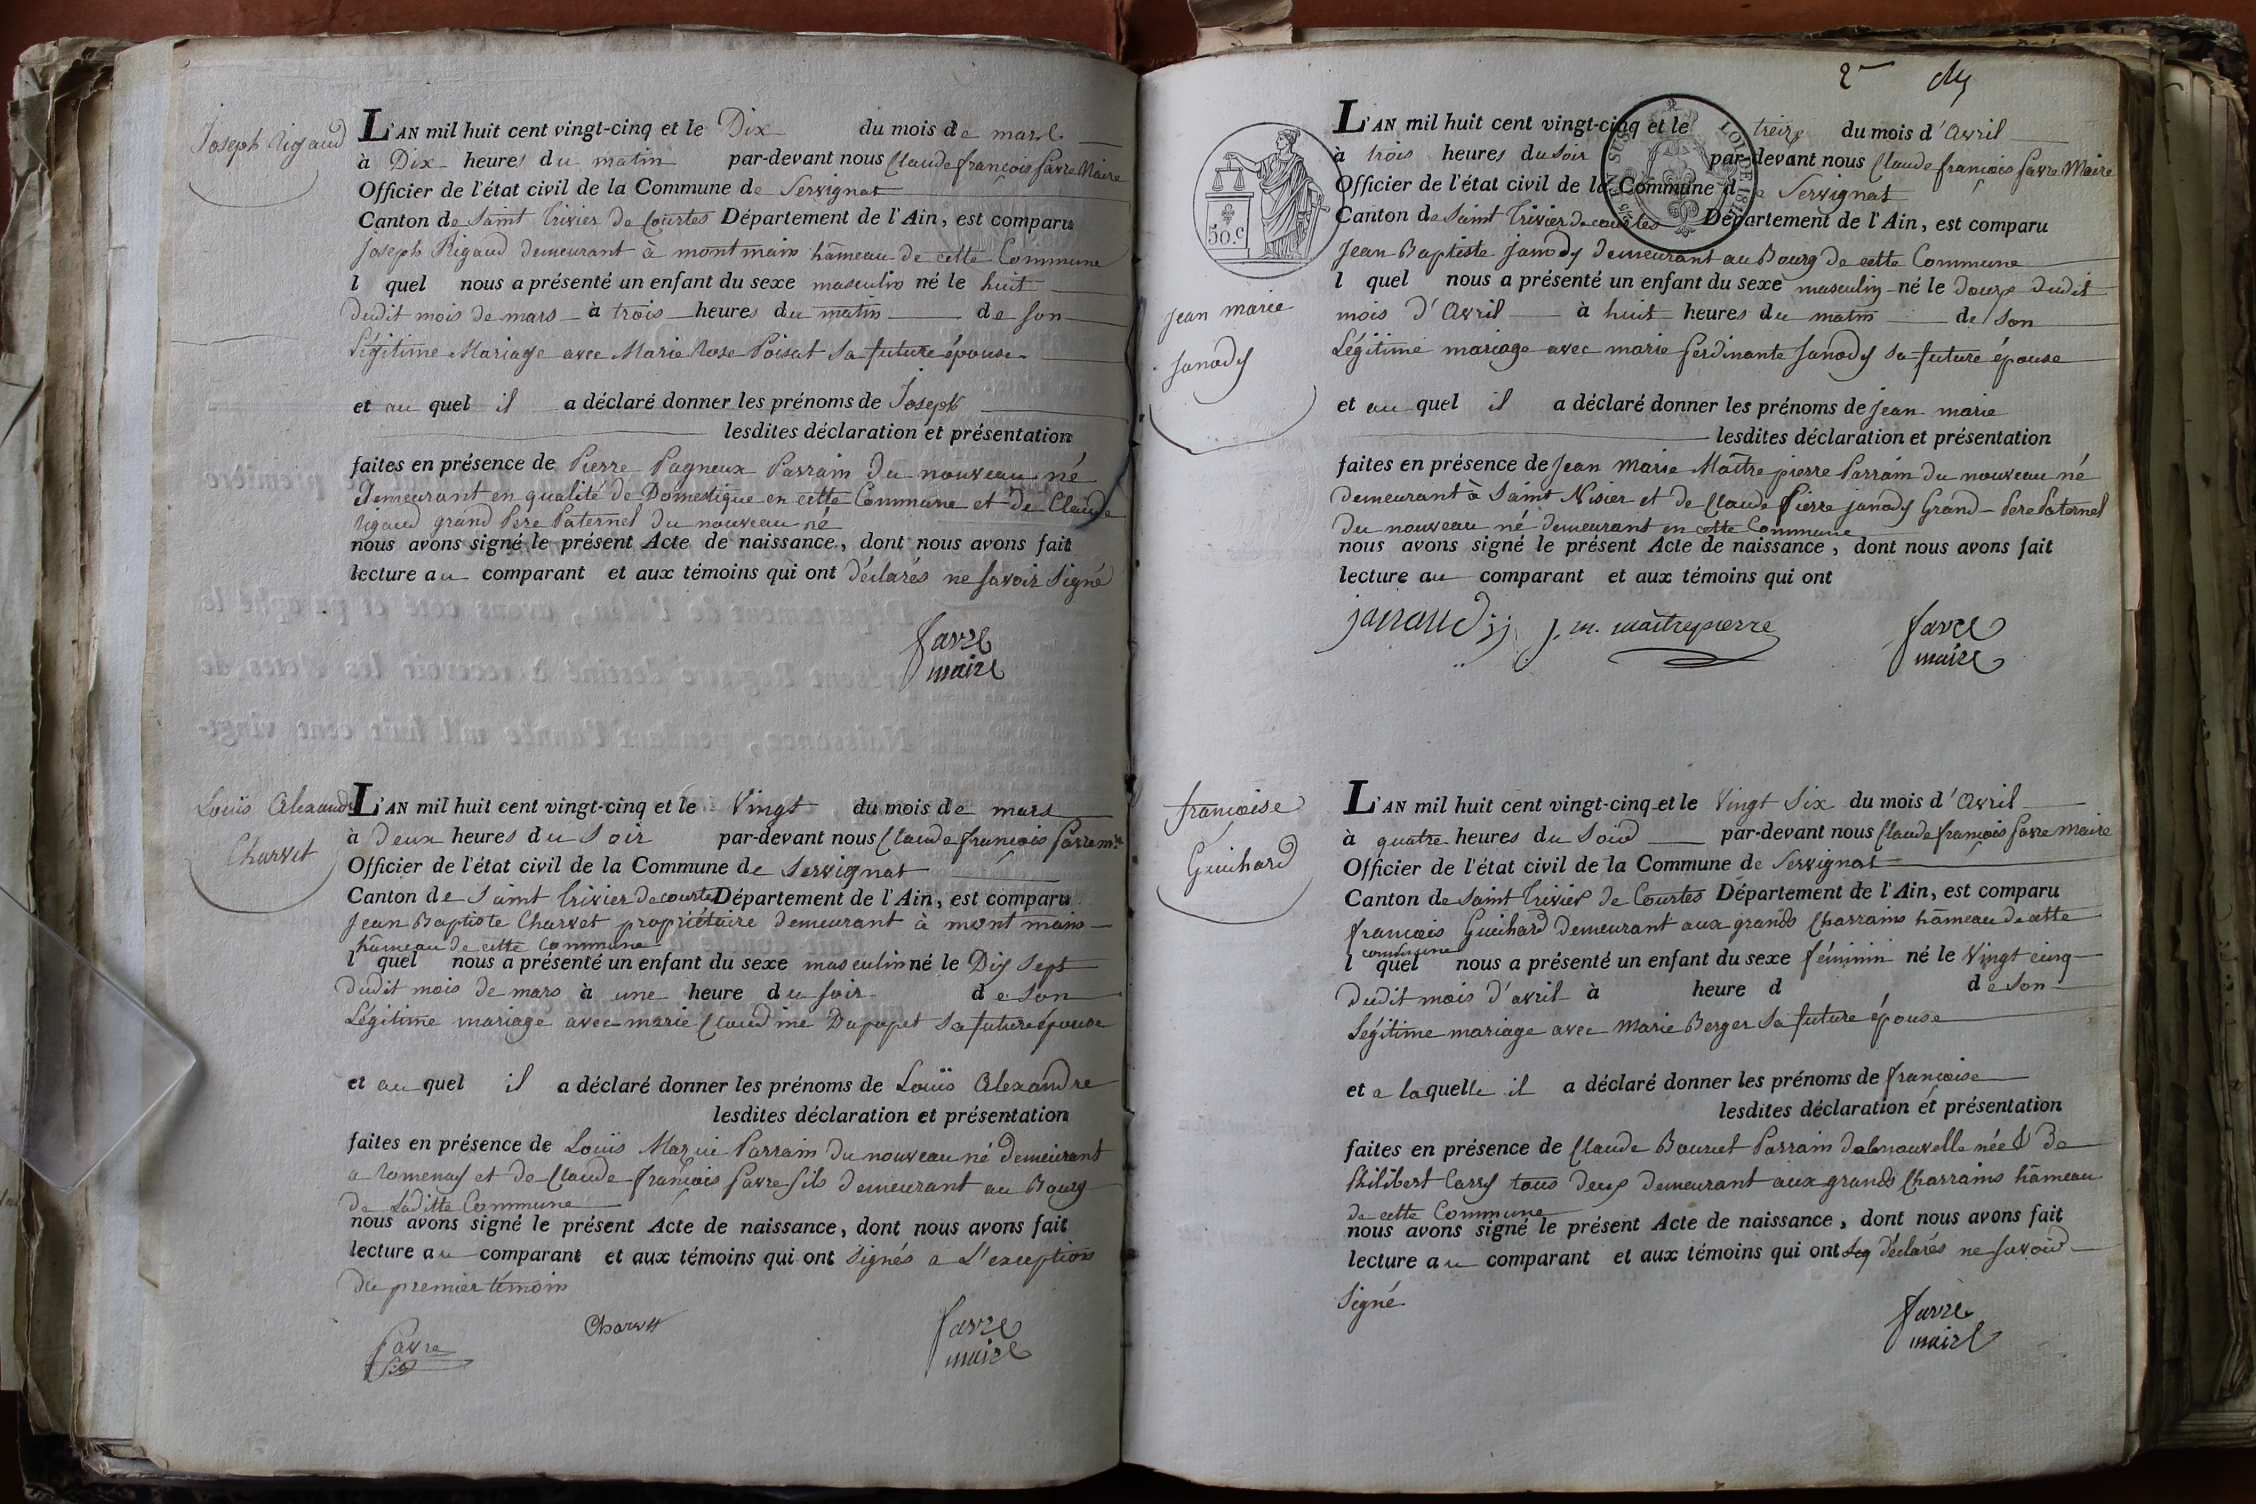 Joseph Rigaud
L'AN mil huit cent vingt-cinq et le Dix du mois de mars
à Dix heures du matin par-devant nous Claude françois favre Maire
Officier de l'état civil de la Commune de Servignat
Canton de Saint Trivier de Courtes Département de l'Ain, est comparu
Joseph Rigaud demeurant à montmain hâmeau de cette Commune
l quel nous a présenté un enfant du sexe masculin né le huit
dudit mois de mars à trois heures du matin de son
Légitime Mariage avec Marie Rose Poisat sa future épouse
et au quel il a déclaré donner les prénoms de Joseph
lesdites déclaration et présentation
faites en présence de Pierre Pagneux Parrain du nouveau né
demeurant en qualité de Domestique en cette Commune et de Claude
rigaud grand Pere Paternel du nouveau né
nous avons signé le présent Acte de naissance, dont nous avons fait
lecture au comparant et aux témoins qui ont déclarés ne savoir signé
favre
maire
Louis Alexandre
Charvet
L'AN mil huit cent vingt-cinq et le Vingt du mois de mars
à Deux heures du Soir par-devant nous Claude françois favre m.re
Officier de l'état civil de la Commune de Servignat
Canton de Saint Trivier de courtes Département de l'Ain, est comparu
Jean Baptiste Charvet propriétaire demeurant à mont main
hâmeau de cette Commune
l quel nous a présenté un enfant du sexe masculin né le Dix Sept
dudit mois de mars à une heure du soir de son
Légitime mariage avec marie Claudine Dupupet sa future épouse
et au quel il a déclaré donner les prénoms de Louïs Alexandre
lesdites déclaration et présentation
faites en présence de Louïs Parrain du nouveau né demeurant
a romenay et de Claude françois favre fils demeurant au Bourg
de Laditte Commune
nous avons signé le présent Acte de naissance, dont nous avons fait
lecture au comparant et aux témoins qui ont signés a L'exception
du premier témoin
Favre
fils
Charvet
favre
maire
2e
50.c
LOI DE 181
jean marie
Janody
L'AN mil huit cent vingt-cinq et le treize du mois d'Avril
à trois heures du soir par-devant nous Claude françois favre Maire
Officier de l'état civil de la Commune de Servignat
Canton de Saint Trivier de courtes Département de l'Ain, est comparu
Jean Baptiste janody demeurant au Bourg de cette Commune
l quel nous a présenté un enfant du sexe masculin né le douze dudit
mois d'Avril à huit heures du matin de son
Légitime mariage avec marie ferdinante Janody sa future épouse
et au quel il a déclaré donner les prénoms de jean marie
lesdites déclaration et présentation
faites en présence de Jean Marie Maître pierre Parrain du nouveau né
demeurant à Saint Nisier et de Claude Pierre janody Grand-Pere Paternel
du nouveau né demeurant en cette Commune
nous avons signé le présent Acte de naissance, dont nous avons fait
lecture au comparant et aux témoins qui ont
j. m. maîtrepierre
favre
maire
françoise
Guichard
L'AN mil huit cent vingt-cinq et le Vingt Six du mois d'Avril
à quatre heures du Soid par-devant nous Claude françois favre Maire
Officier de l'état civil de la Commune de Servignat
Canton de Saint Trivier de Courtes Département de l'Ain, est comparu
françois Guichard demeurant aux grands Charrains hâmeau de cette
commune
l quel nous a présenté un enfant du sexe féminin né le Vingt cinq
dudit mois d'avril à heure d de son
Légitime mariage avec Marie Berger sa future épouse
et a laquelle il a déclaré donner les prénoms de françoise
lesdites déclaration et présentation
faites en présence de Claude Parrain de la nouvelle née & de
Philibert Carry tous deux demeurant aux grands Charrains hâmeau
de cette Commune
nous avons signé le présent Acte de naissance, dont nous avons fait
lecture au comparant et aux témoins qui ont déclarés ne savoid
signé
favre
maire